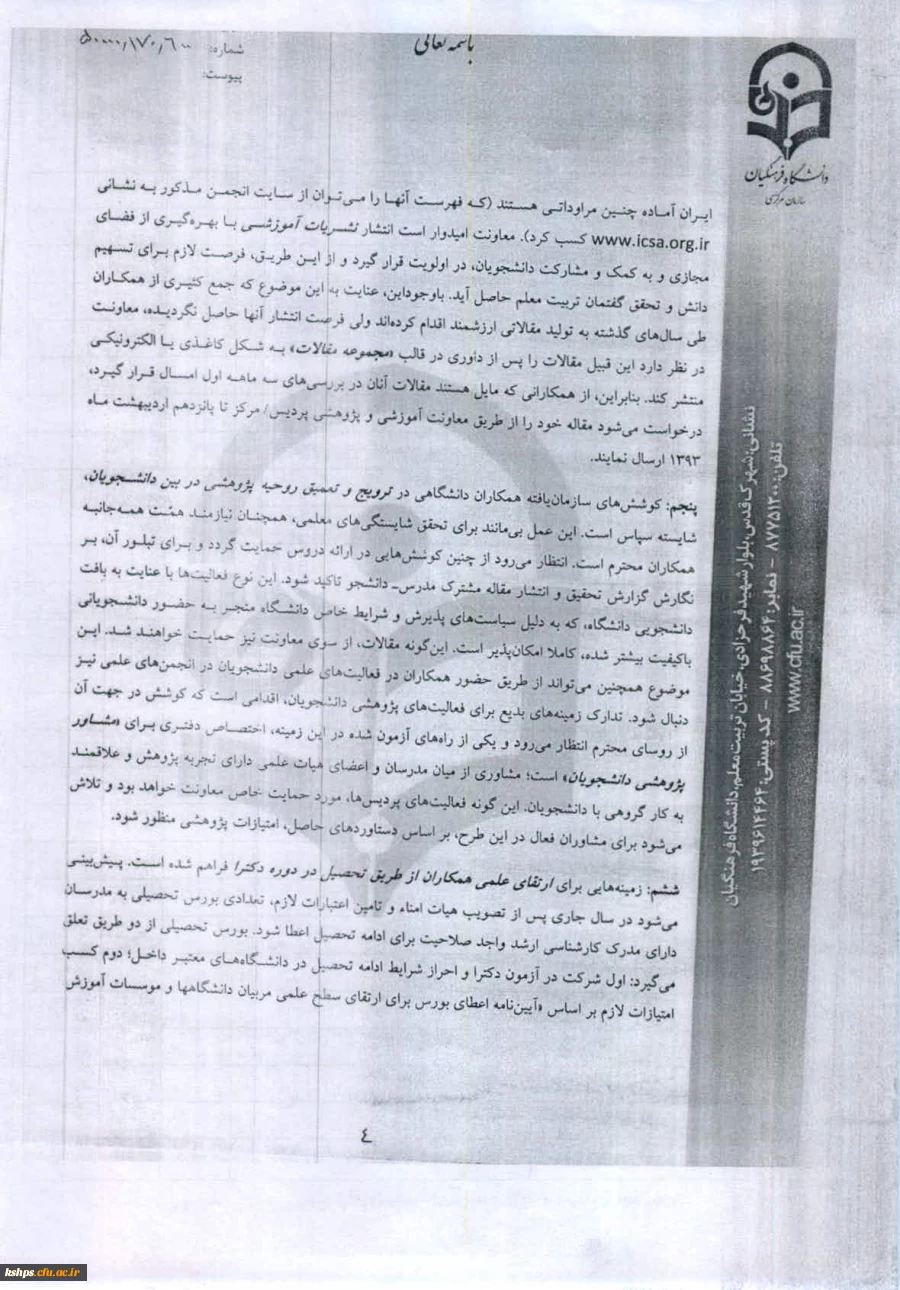 باسمه تعالی
شماره: ۵۰۰۰۰/۱۷۰/۶۰۰
پیوست:
دانشگاه فرهنگیان
سازمان مرکزی
ایران آماده چنین مراوداتی هستند (که فهرست آنها را می‌توان از سایت انجمن مذکور به نشانی
www.icsa.org.ir کسب کرد). معاونت امیدوار است انتشار نشریات آموزشی با بهره‌گیری از فضای
مجازی و به کمک و مشارکت دانشجویان، در اولویت قرار گیرد و از این طریق، فرصت لازم برای تسهیم
دانش و تحقق گفتمان تربیت معلم حاصل آید. باوجوداین، عنایت به این موضوع که جمع کثیری از همکاران
طی سال‌های گذشته به تولید مقالاتی ارزشمند اقدام کرده‌اند ولی فرصت انتشار آنها حاصل نگردیده، معاونت
در نظر دارد این قبیل مقالات را پس از داوری در قالب «مجموعه مقالات» به شکل کاغذی یا الکترونیکی
منتشر کند. بنابراین، از همکارانی که مایل هستند مقالات آنان در بررسی‌های سه ماهه اول امسال قرار گیرد،
درخواست می‌شود مقاله خود را از طریق معاونت آموزشی و پژوهشی پردیس/ مرکز تا پانزدهم اردیبهشت ماه
۱۳۹۳ ارسال نمایند.
پنجم: کوشش‌های سازمان‌یافته همکاران دانشگاهی در ترویج و تعمیق روحیه پژوهشی در بین دانشجویان،
شایسته سپاس است. این عمل بی‌مانند برای تحقق شایستگی‌های معلمی، همچنان نیازمند همّت همه‌جانبه
همکاران محترم است. انتظار می‌رود از چنین کوشش‌هایی در ارائه دروس حمایت گردد و برای تبلور آن، بر
نگارش گزارش تحقیق و انتشار مقاله مشترک مدرس- دانشجو تاکید شود. این نوع فعالیت‌ها با عنایت به بافت
دانشجویی دانشگاه، که به دلیل سیاست‌های پذیرش و شرایط خاص دانشگاه منجر به حضور دانشجویانی
باکیفیت بیشتر شده، کاملا امکان‌پذیر است. این‌گونه مقالات، از سوی معاونت نیز حمایت خواهند شد. این
موضوع همچنین می‌تواند از طریق حضور همکاران در فعالیت‌های علمی دانشجویان در انجمن‌های علمی نیز
دنبال شود. تدارک زمینه‌های بدیع برای فعالیت‌های پژوهشی دانشجویان، اقدامی است که کوشش در جهت آن
از روسای محترم انتظار می‌رود و یکی از راه‌های آزمون شده در این زمینه، اختصاص دفتری برای «مشاور
پژوهشی دانشجویان» است؛ مشاوری از میان مدرسان و اعضای هیات علمی دارای تجربه پژوهش و علاقمند
به کار گروهی با دانشجویان. این گونه فعالیت‌های پردیس‌ها، مورد حمایت خاص معاونت خواهد بود و تلاش
می‌شود برای مشاوران فعال در این طرح، بر اساس دستاوردهای حاصل، امتیازات پژوهشی منظور شود.
ششم: زمینه‌هایی برای ارتقای علمی همکاران از طریق تحصیل در دوره دکترا فراهم شده است. پیش‌بینی
می‌شود در سال جاری پس از تصویب هیات امناء و تامین اعتبارات لازم، تعدادی بورس تحصیلی به مدرسان
دارای مدرک کارشناسی ارشد واجد صلاحیت برای ادامه تحصیل اعطا شود. بورس تحصیلی از دو طریق تعلق
می‌گیرد: اول شرکت در آزمون دکترا و احراز شرایط ادامه تحصیل در دانشگاه‌های معتبر داخل؛ دوم کسب
امتیازات لازم بر اساس «آیین‌نامه اعطای بورس برای ارتقای سطح علمی مربیان دانشگاهها و موسسات آموزش
٤
نشانی: شهرک قدس، بلوار شهید فرحزادی، خیابان تربیت معلم، دانشگاه فرهنگیان
تلفن: ۸۷۷۵۱۲۰۰ - نمابر: ۸۸۶۹۸۸۶۴ - کد پستی: ۱۹۳۹۶۱۴۴۶۴
www.cfu.ac.ir
kshps.cfu.ac.ir